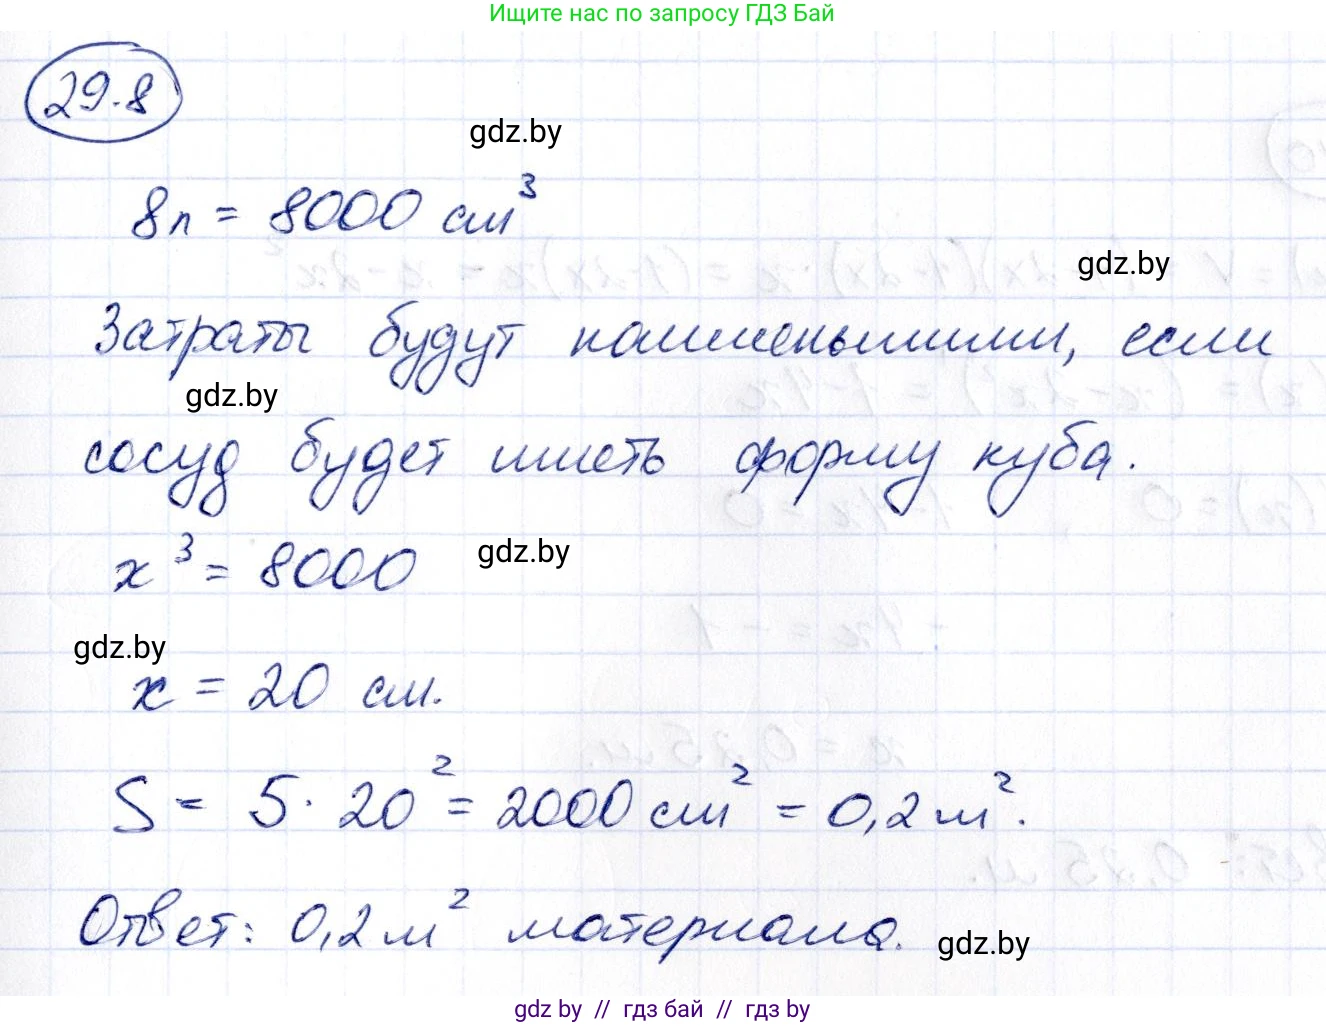 Ищите нас по запросу ГДЗ Бай
29.8
gdz.by
8л = 8000 см³
gdz.by
Затраты будут наименьшими, если
gdz.by
сосуд будет иметь форму куба.
x³ = 8000
gdz.by
gdz.by
x = 20 см.
S = 5 · 20² = 2000 см² = 0,2 м².
Ответ: 0,2 м² материала.
gdz.by
gdz by // гдз бай // гдз by